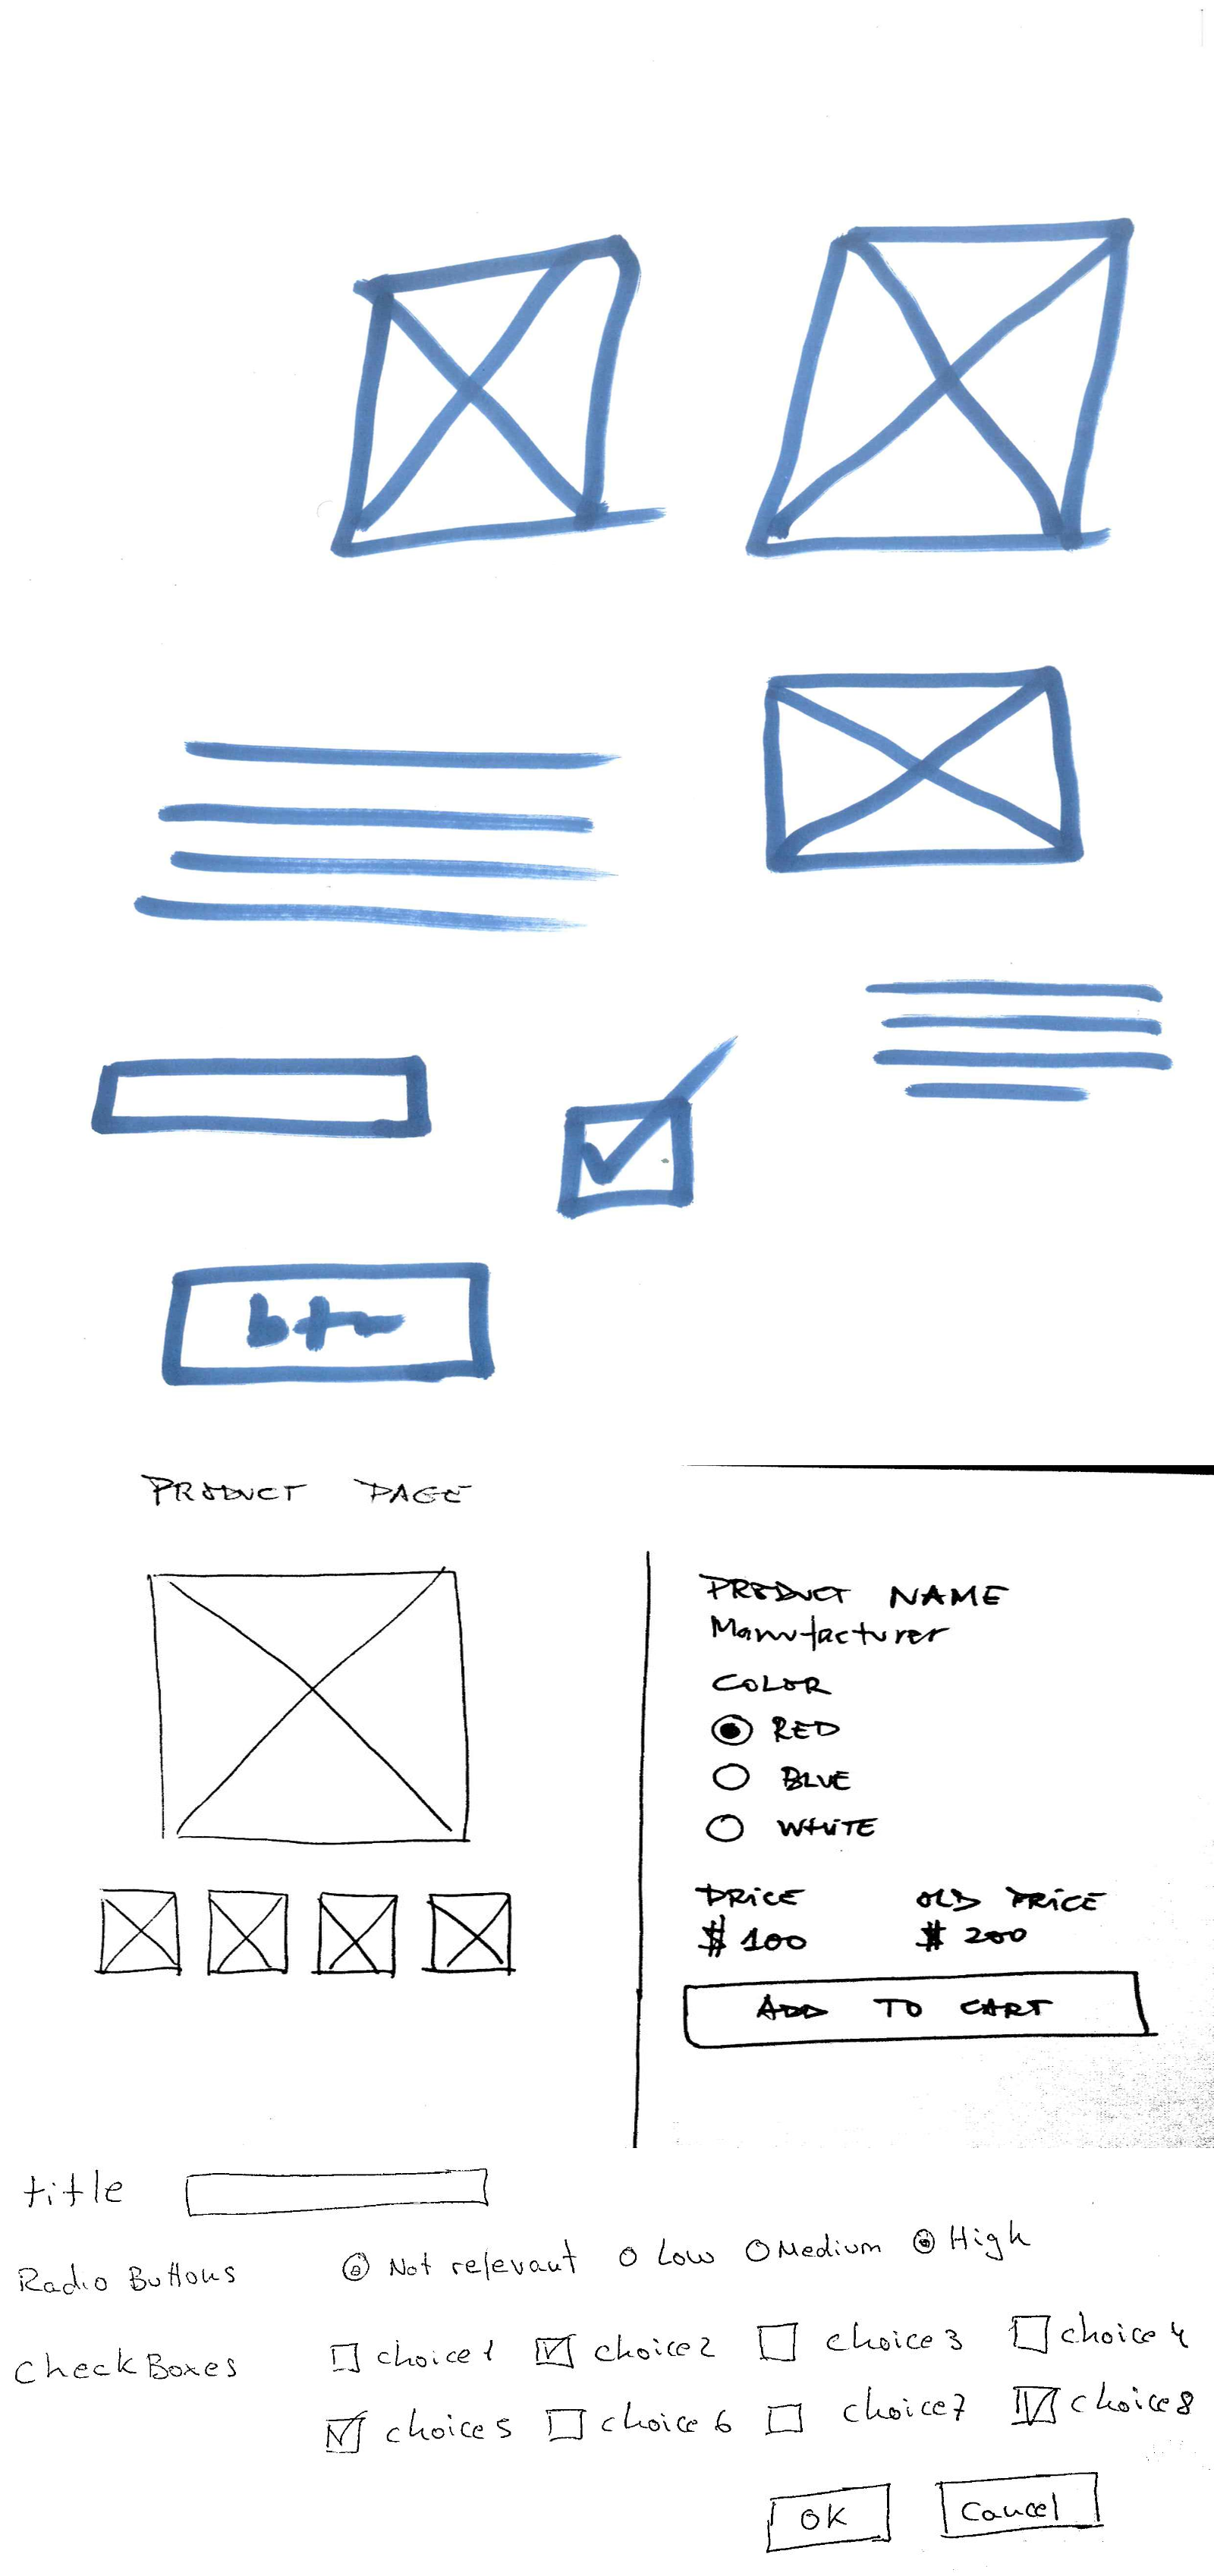 btn
PRODUCT PAGE
PRODUCT NAME
Manufacturer
COLOR
RED
BLUE
WHITE
PRICE OLD PRICE
$100 $200
ADD TO CART
title
Radio Buttons Not relevant Low Medium High
CheckBoxes choice1 choice2 choice3 choice4
choice5 choice6 choice7 choice8
OK Cancel